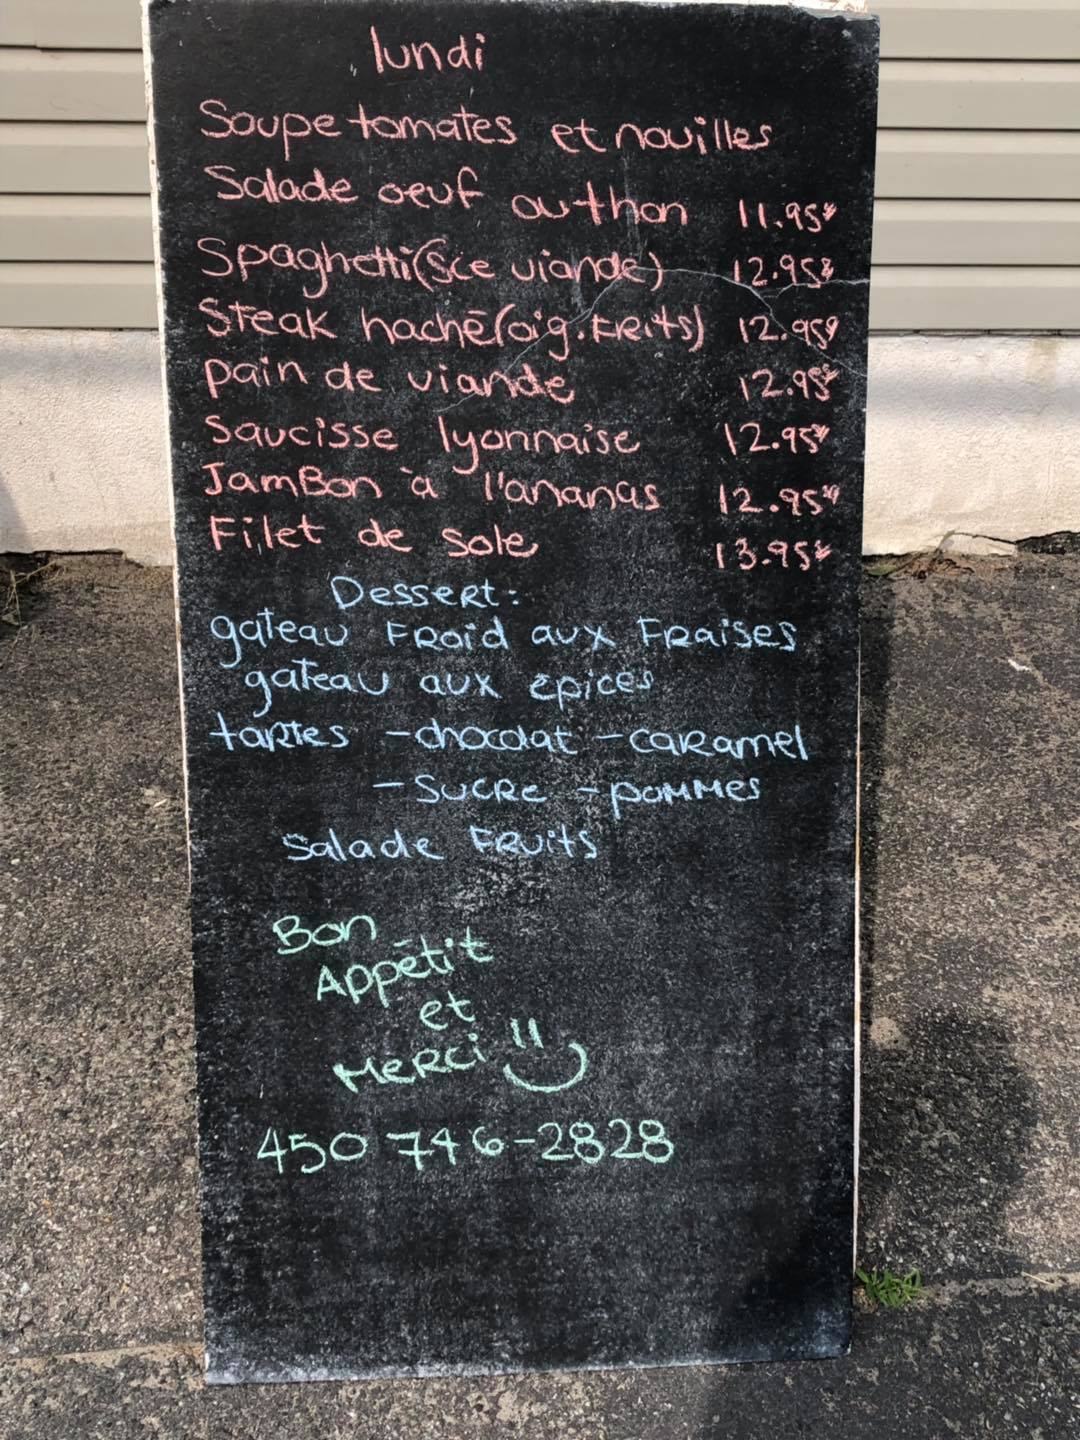 lundi
Soupe tomates et nouilles
Salade oeuf ou thon 11.95$
Spaghetti (sce viande) 12.95$
Steak haché (oig. FRits) 12.95$
pain de viande 12.95$
Saucisse lyonnaise 12.95$
JamBon à l'ananas 12.95$
Filet de sole 13.95$
DesseRt:
gateau FRoid aux FRaises
gateau aux épices
taRtes - chocolat - caRamel
- SucRe - pommes
Salade FRuits
Bon
Appétit
et
MeRci
450 746-2828